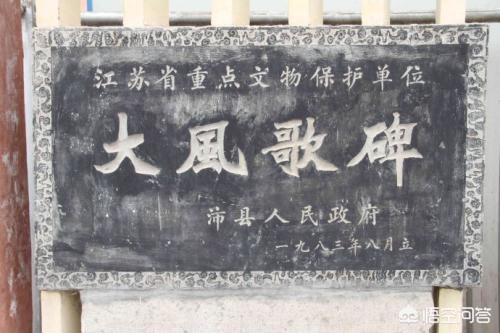 江苏省重点文物保护单位
大風歌碑
沛县人民政府
一九八三年八月立
悟空问答